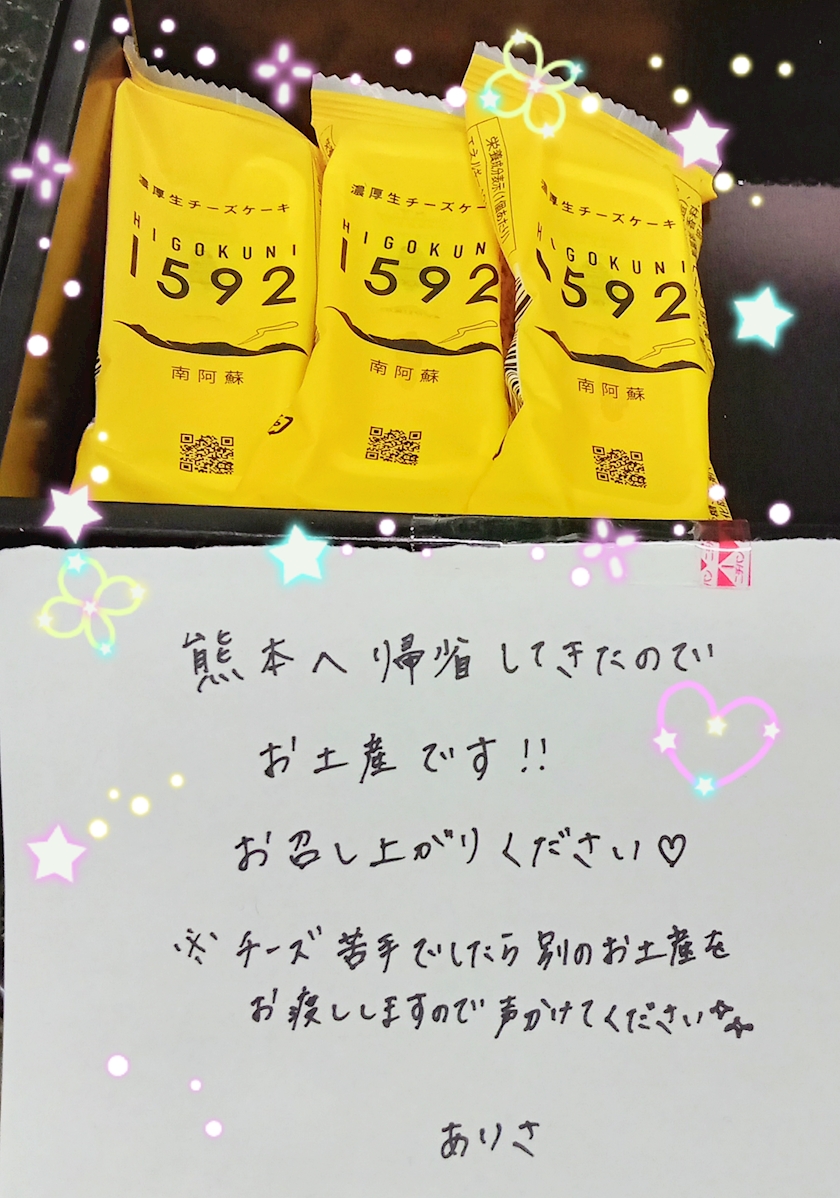 濃厚生チーズケーキ
HIGOKUNI
1592
南阿蘇
濃厚生チーズケー
HIGOKUN
1592
南阿蘇
栄養成分表示(1個あたり)
濃厚生チーズケーキ
HIGOKUNI
1592
南阿蘇
ニチバン
熊本へ帰省してきたので
お土産です!!
お召し上がりください♡
※チーズ苦手でしたら別のお土産を
お渡ししますので声かけてください
ありさ